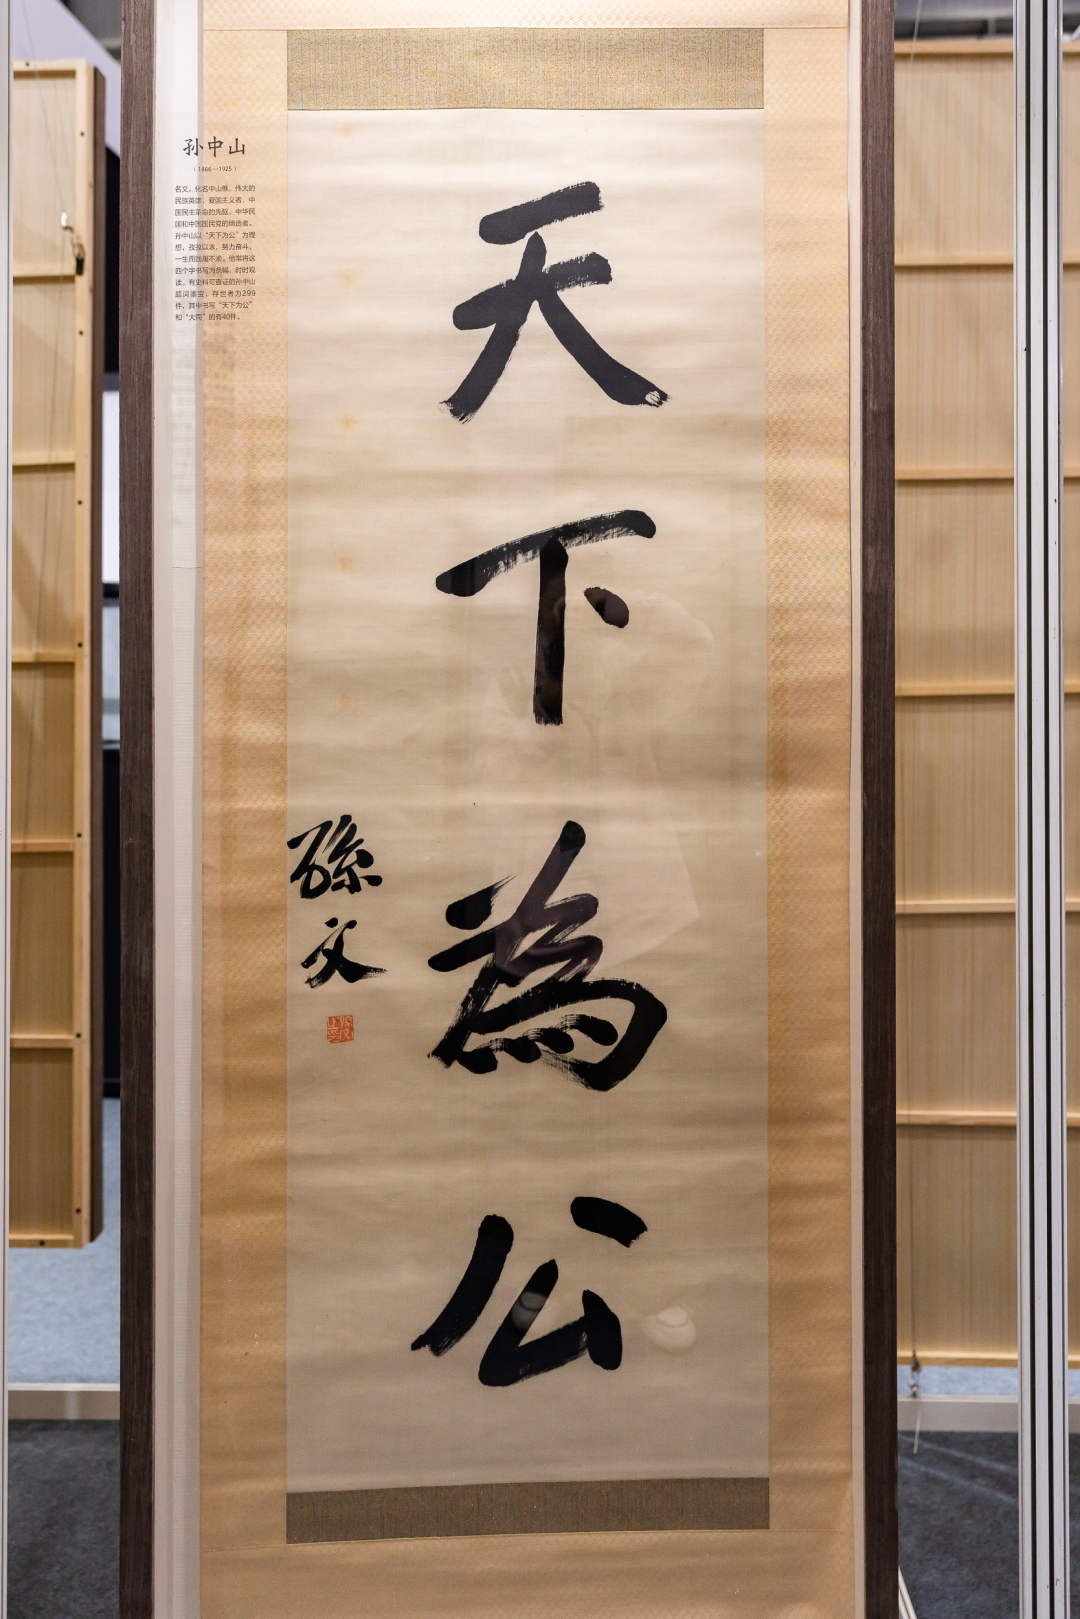 天下為公
孫文
孙中山
（1866—1925）
名文，化名中山樵，伟大的
民族英雄、爱国主义者、中
国民主革命的先驱，中华民
国和中国国民党的缔造者。
孙中山以“天下为公”为理
想，孜孜以求，努力奋斗，
一生而践履不渝。他常将这
四个字书写为条幅，时时观
读。有史料可查证的孙中山
题词墨宝，存世者为299
件，其中书写“天下为公”
和“大同”的有40件。